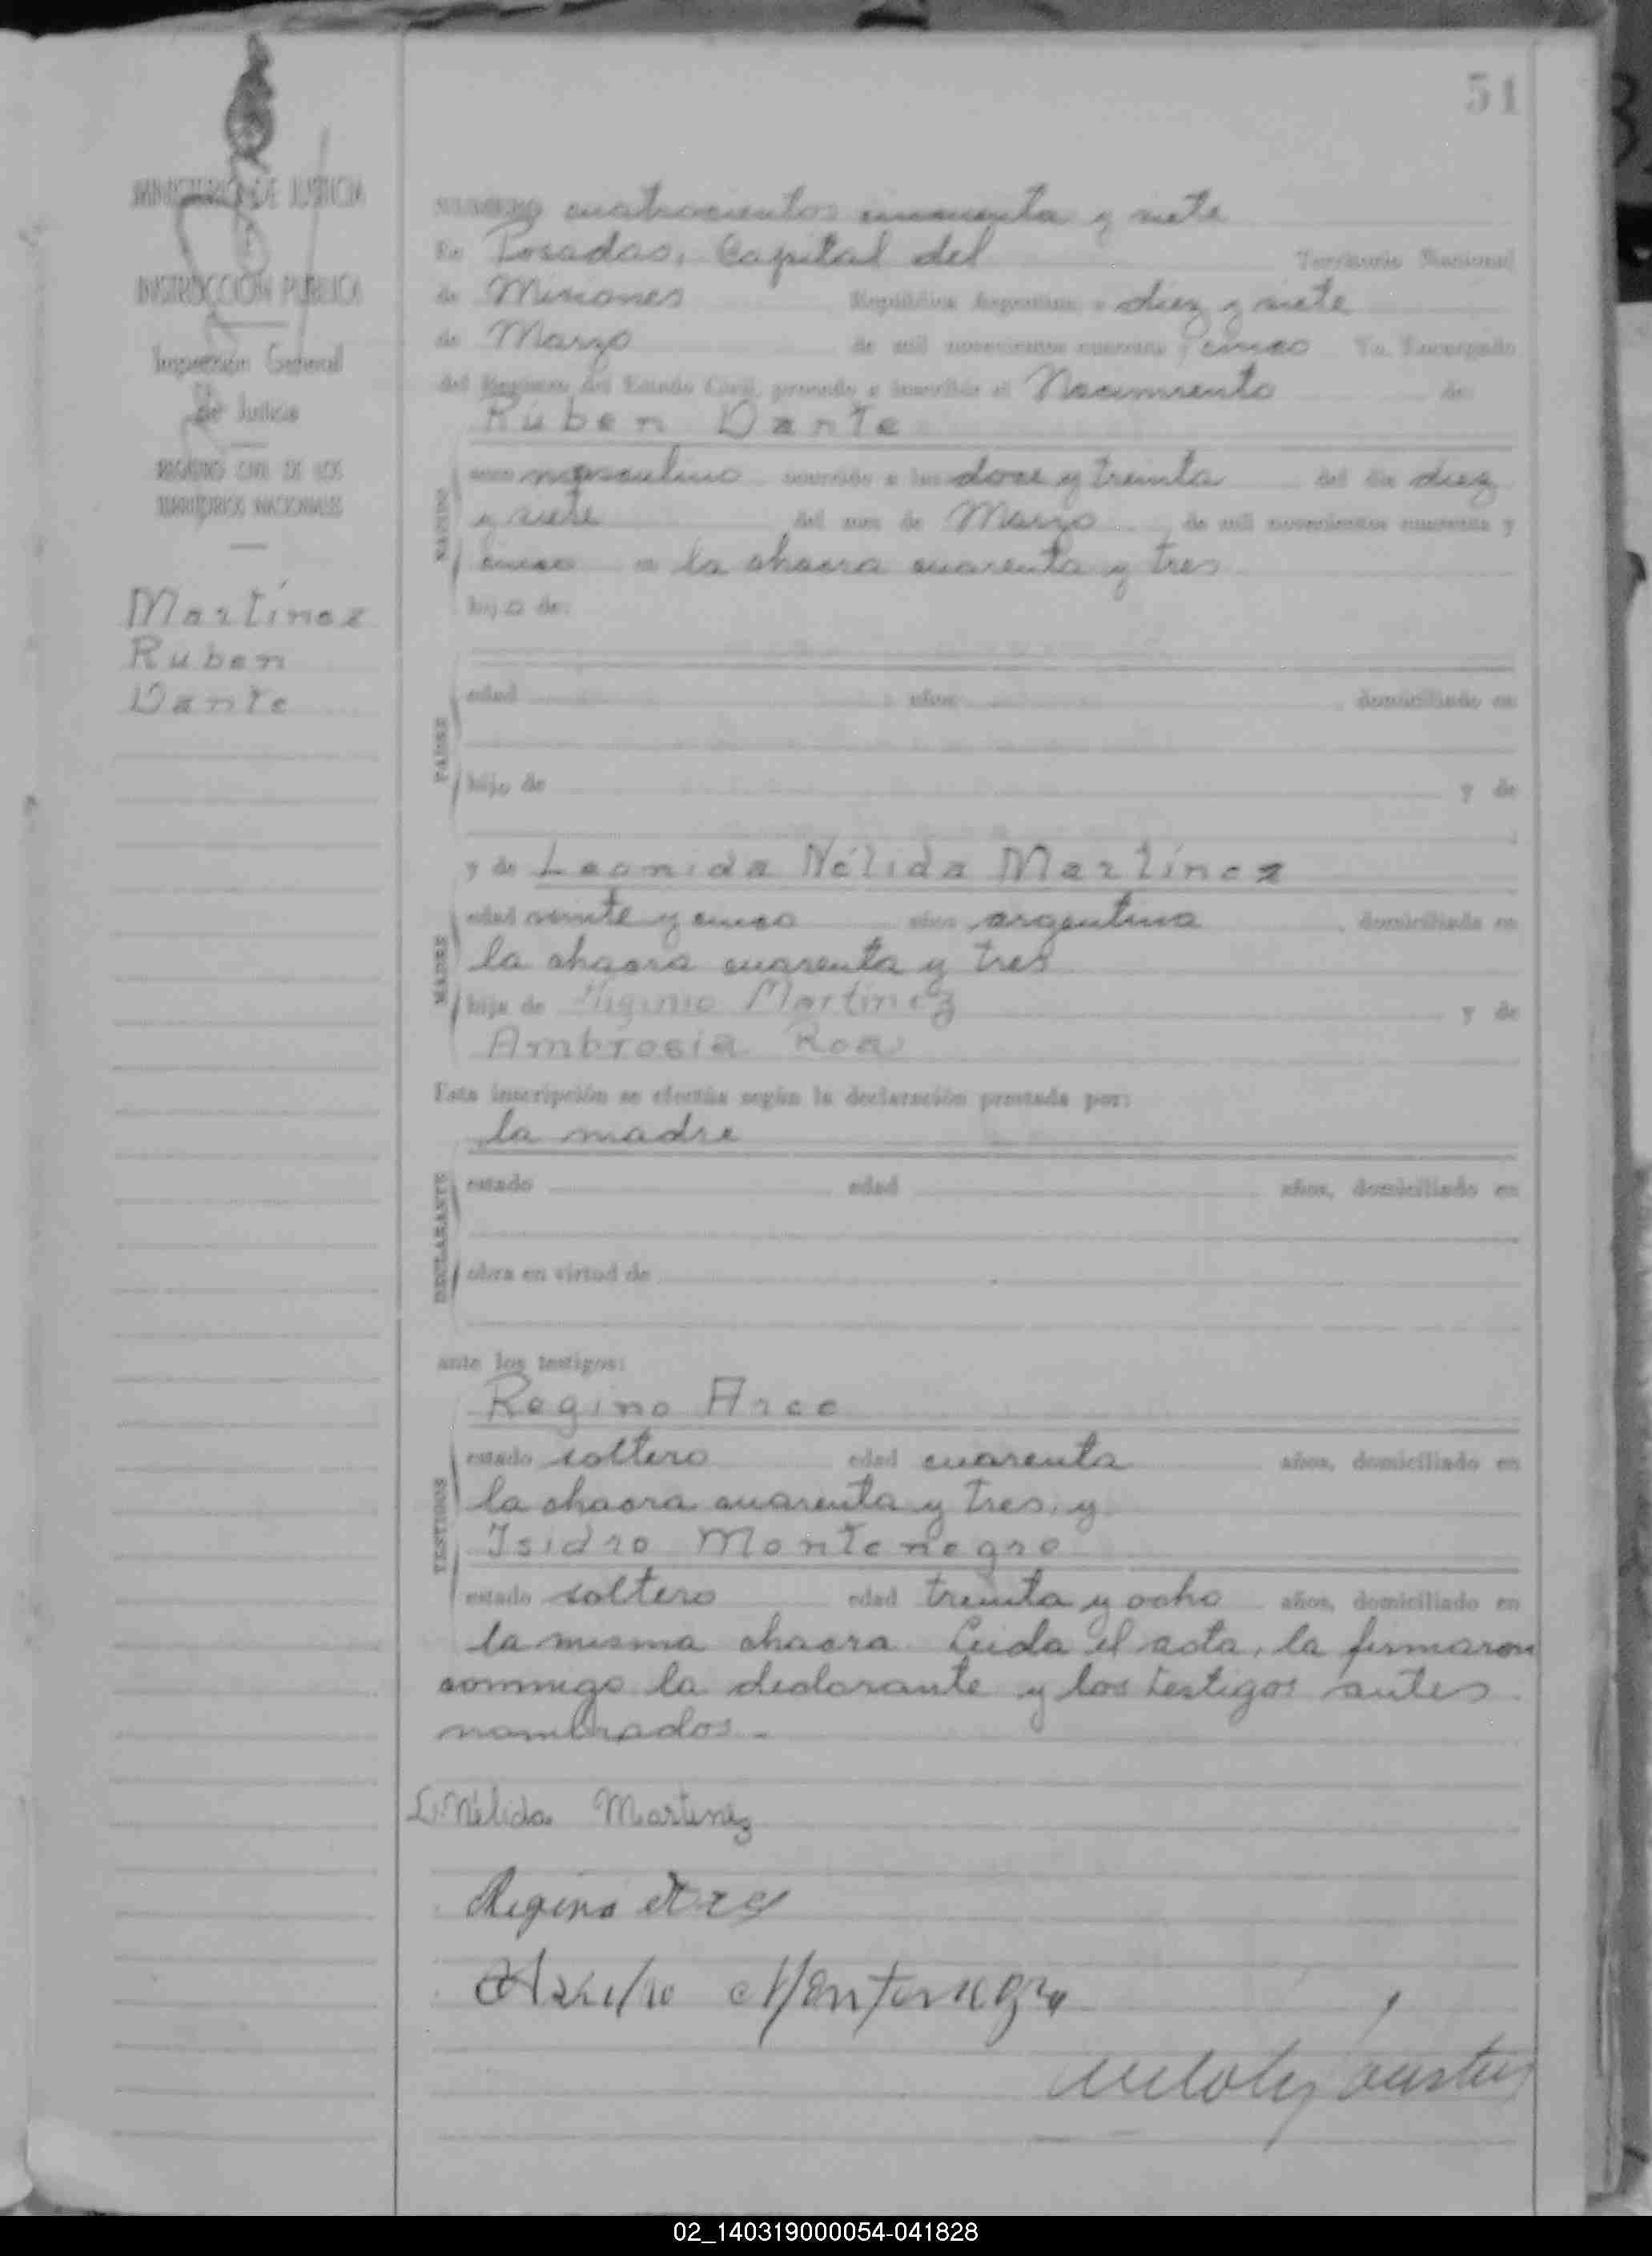 51
MINISTERIO DE JUSTICIA
INSTRUCCION PUBLICA
Inspección General
de Justicia
REGISTRO CIVIL DE LOS
TERRITORIOS NACIONALES
Martínez
Ruben
Dante
NUMERO cuatrocientos cincuenta y siete
En Posadas, Capital del Territorio Nacional
de Misiones República Argentina a diez y siete
de Marzo de mil novecientos cuarenta y cinco Yo, Encargado
del Registro del Estado Civil, procedo a inscribir el Nacimiento de:
Rúben Dante
NACIDO
sexo masculino ocurrido a las doce y treinta del día diez
y siete del mes de Marzo de mil novecientos cuarenta y
cinco a la chacra cuarenta y tres
hijo de:
PADRE
edad años domiciliado en
hijo de y de
y de Leonida Nélida Martínez
MADRE
edad veinte y cinco años argentina domiciliada en
la chacra cuarenta y tres
hija de Higinio Martínez y de
Ambrosia Roa
Esta inscripción se efectúa según la declaración prestada por:
la madre
DECLARANTE
estado edad años, domiciliado en
obra en virtud de
ante los testigos:
Regino Arce
TESTIGOS
estado soltero edad cuarenta años, domiciliado en
la chacra cuarenta y tres, y
Isidro Montenegro
estado soltero edad treinta y ocho años, domiciliado en
la misma chacra. Leida el acta, la firmaron
conmigo la declarante y los testigos antes
nombrados.-
L. Nélida Martinez
Regino Arce
Montenegro
02_140319000054-041828